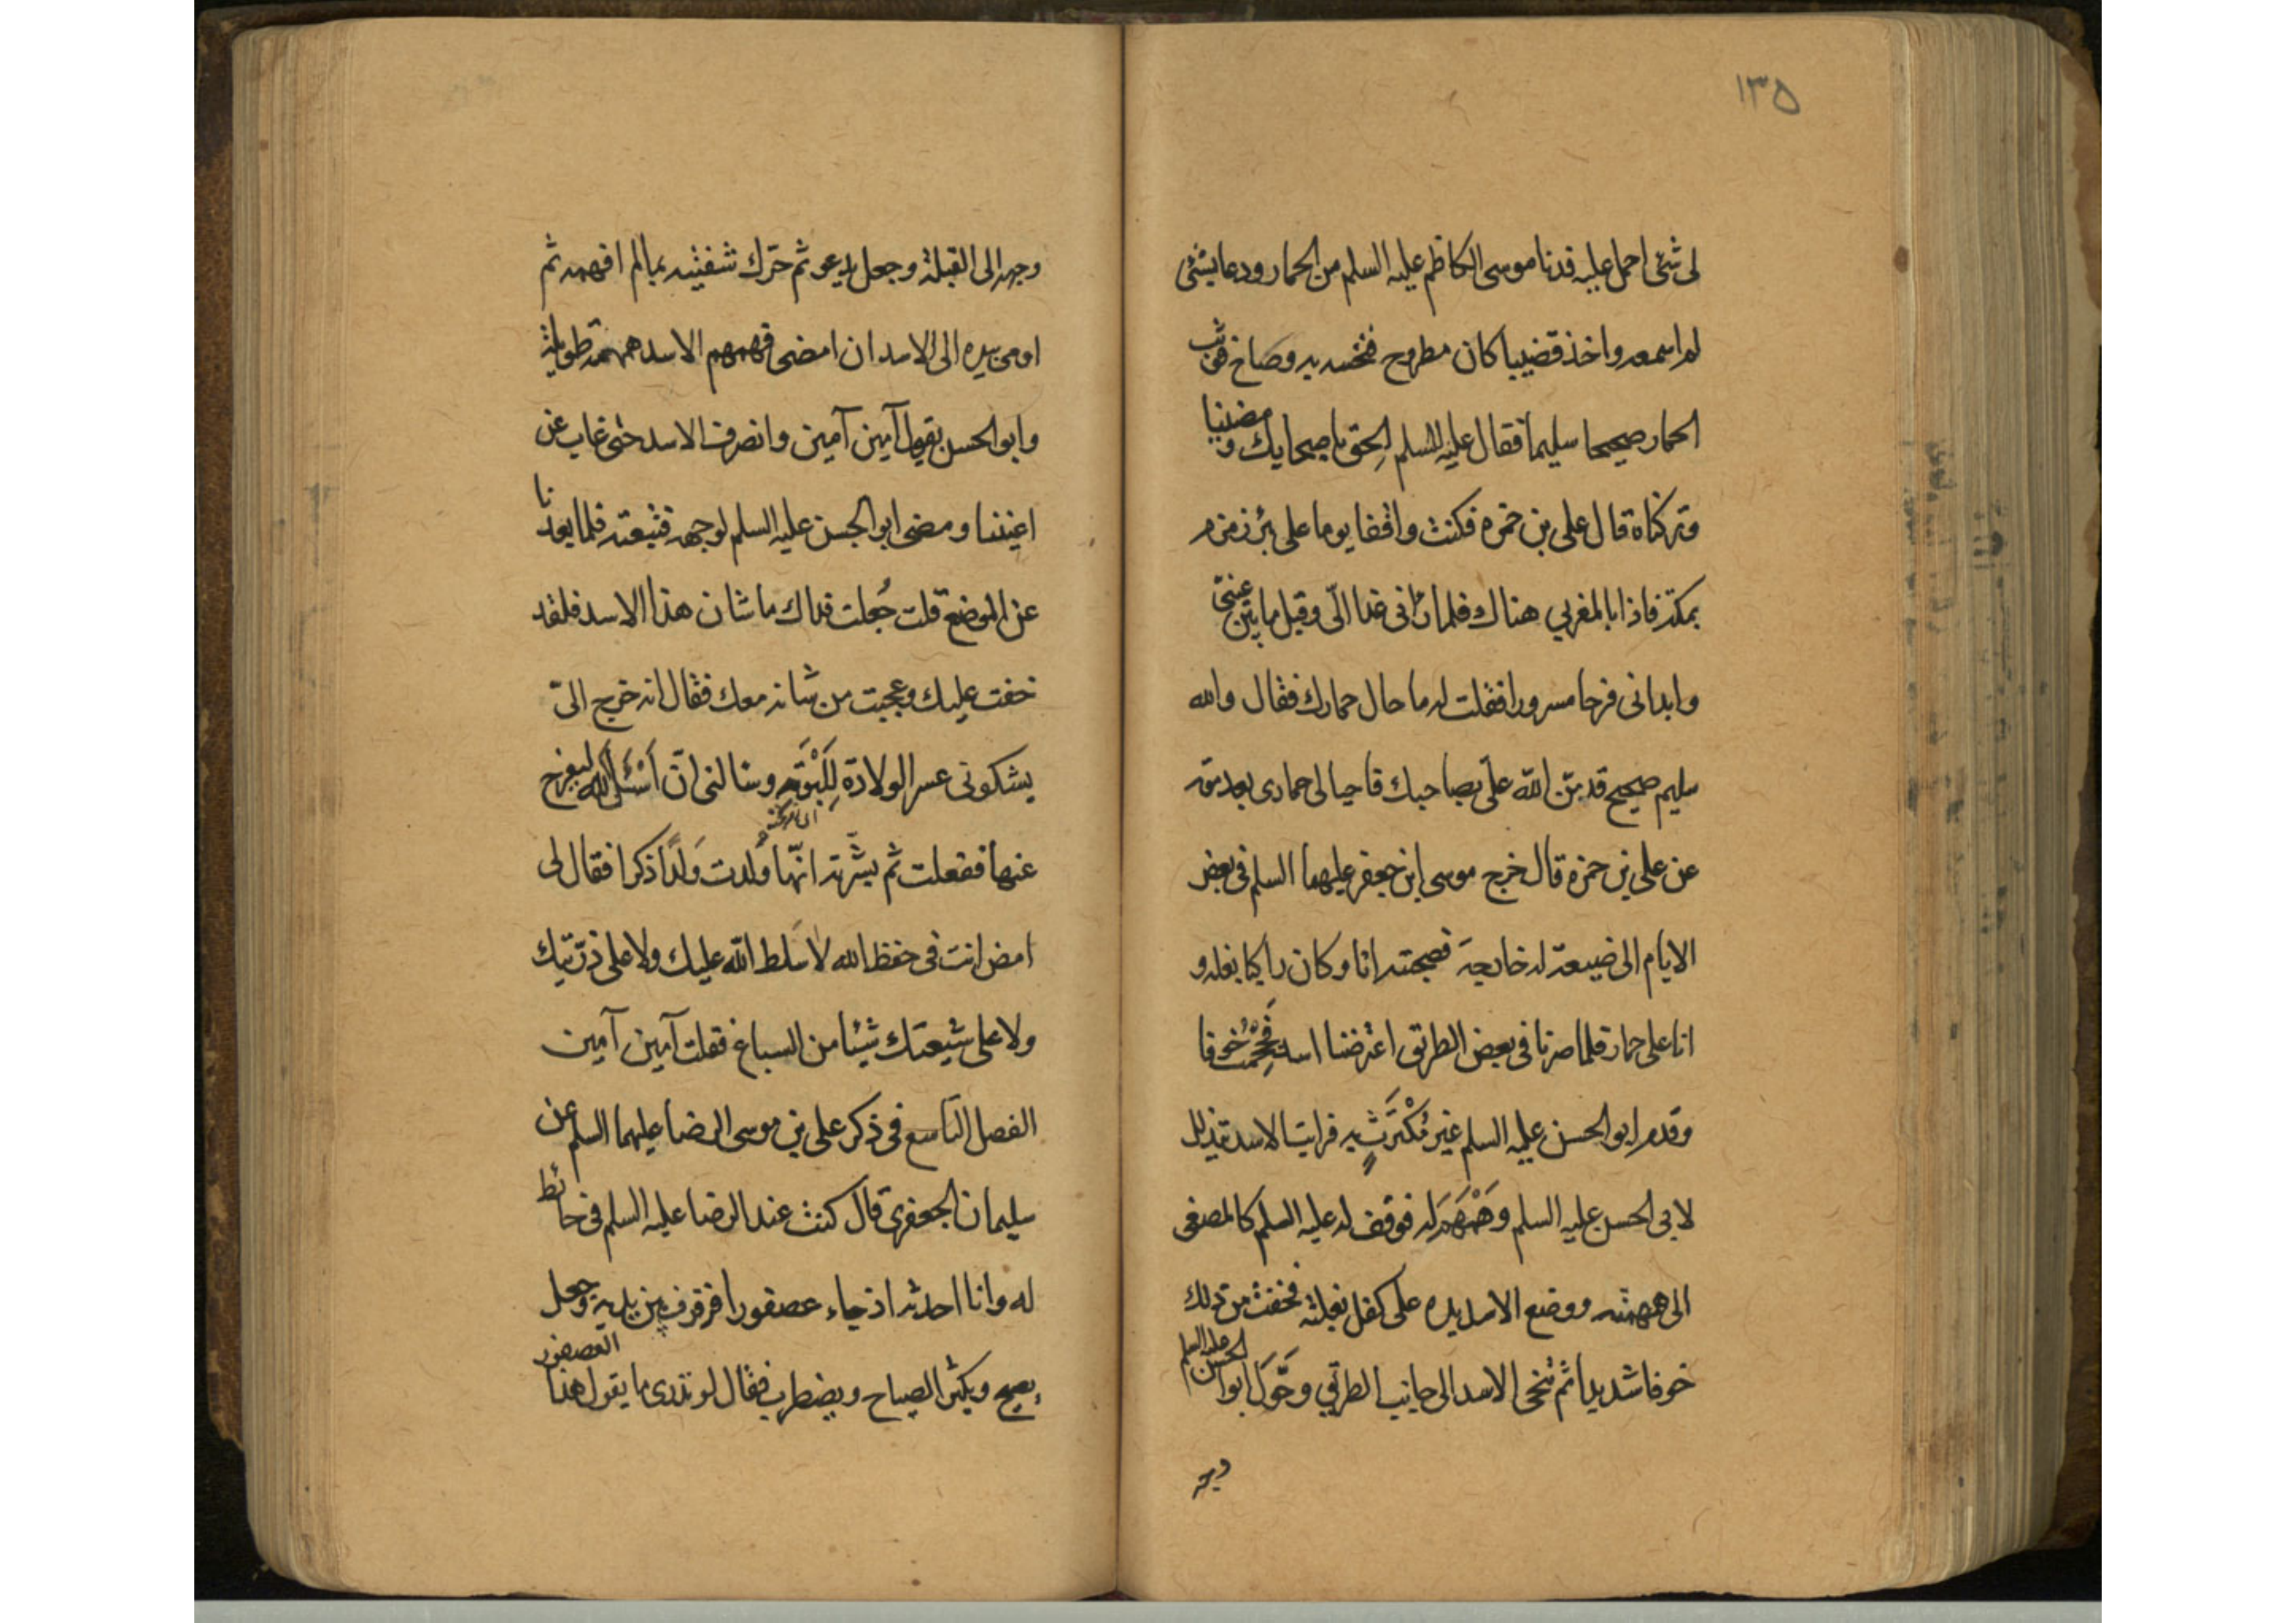 ١٣٥
لی شئ احمل علیه فدنا موسی الکاظم علیه السلم من الحمار ودعا بشئ
لم اسمعه واخذ قضیبا کان مطروح فنخسه به وصاح فوثب
الحمار صحیحا سلیما فقال علیه السلم الحق باصحابک ومضینا
وترکناه قال علی بن حمزه فکنت واقفا یوما علی بئر زمزم
بمکة فاذا بالمغربی هناک فلما رانی غدا الیّ وقبل ما بین عینی
وابدانی فرحا مسرورا فقلت له ما حال حمارک فقال والله
سلیم صحیح قد منّ الله علیّ بصاحبک فاحیا لی حماری بعد موته
عن علی بن حمزه قال خرج موسی ابن جعفر علیهما السلم فی بعض
الایام الی ضیعة له خارجة فصحبته انا وکان راکبا بغله و
انا علی حمار فلما صرنا فی بعض الطریق اعترضنا اسد فَحِمْتُ خوفا
وقدم ابو الحسن علیه السلم غیر مُکْتَرَثٍ به فرایت الاسد یتذلل
لابی الحسن علیه السلم وَهَمْهَمَ له فوقف له علیه السلم کالمصغی
الی همهمته ووضع الاسد یده علی کفل بغلته فخفت من ذلک
خوفا شدیدا ثم تنحی الاسد الی جانب الطریق وحَّوَلَ ابو الحسن علیه السلم
وجهه
وجهه الی القبلة وجعل یدعو ثم حرّک شفتیه بما لم افهمه ثم
اومی بیده الی الاسد ان امضی فهمهم الاسد همهمة طویلة
وابو الحسن یقول آمین آمین وانصرف الاسد حتی غاب عن
اعیننا ومضی ابو الحسن علیه السلم لوجهه فتبعته فلما بعدنا
عن الموضع قلت جُعلت فداک ما شان هذا الاسد فلقد
خفت علیک وعجبت من شانه معک فقال انه خرج الیّ
یشکونی عسر الولادة لِلَبْوَتِهِ وسالنی انّ اَسْئَلَ الله لیفرج
عنها ففعلت ثم بشّرته انّها وَلدت وَلَدًا ذکرا فقال لی
امض انت فی حفظ الله لا سَلط الله علیک ولا علی ذرّیتک
ولا علی شیعتک شیئا من السباع فقلت آمین آمین
الفصل التاسع فی ذکر علی بن موسی الرضا علیهما السلم عن
سلیمان الجعفری قال کنت عند الرضا علیه السلم فی حائط
له وانا احدثه اذ جاء عصفورا فرفرف بین یدیه وجعل
یصیح ویکثر الصیاح ویضطرب فقال لو تدری ما یقول هذا العصفور